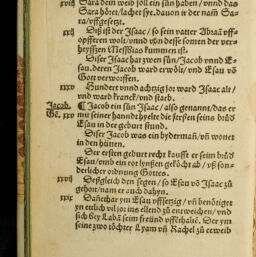 xviij Sara dein weib soll ein sün haben / vnnd das
Sara höret / lachet sye. dauon ir der nam Sa-
ra / vffgesetzt.
xxij Diß ist der Isaac / so sein vatter Abraã vff-
opfferen wolt / vnnd võn desse somen der ver-
heyssẽn Messias kummen ist.
Diser Isaac hat zwen sün / Jacob vnnd E-
sau. deren Jacob ward erwölt / vnd Esau võ
Gott verworffen.
xxxv Hundert vnnd achtzig jor ward Isaac alt /
vnd ward kranck / vnd starb.
Jacob. ¶ Jacob ein sün Isaac / also genannt / das er
Ge. xxv mit seiner hannd hebelt die fersßen seins brůd
Esau in der geburt stund.
Diser Jacob was ein hyderman / vñ wonet
in den hütten.
Der ersten geburt recht kaufft er seim brůd
Esau / vmb ein rot lynßen gekôcht ab / vß son-
derlicher ordnung Gottes.
xxvij Deßgleich den segen / so Esau võ Isaac zů
gehôrt / nam er auch dahyn.
xxix Dañethar ym Esau vffsetzig / vñ benötiget
yn etlich vil jor ins ellend zů entweichen / vnd
sich bey Labã seim freünd vffenthalte. Der ym
seine zwo töchter Lyam vñ Rachel zů erweib